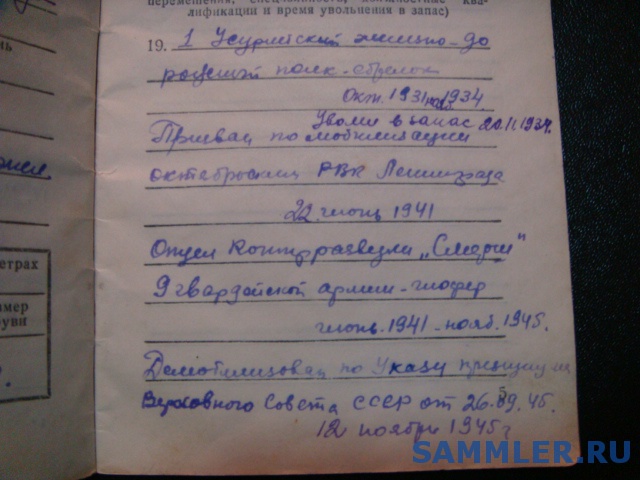 перемещения, специальность, должностные ква-
лификации и время увольнения в запас)
19. 1 Усурийский железно-до
рожный полк-стрелок
Окт. 1931 ноя 1934
Уволен в запас 20.11.1934.
Призван по мобилизации
октябрьским РВК Ленинграда
22 июнь 1941
Отдел контрразведки „Смерш"
9 гвардейской армии-шофер
июнь.1941-нояб.1945.
Демобилизован по Указу президиума
Верховного Совета СССР от 26.09.45.
12 ноября 1945 г
етрах
мер
уви
SAMMLER.RU